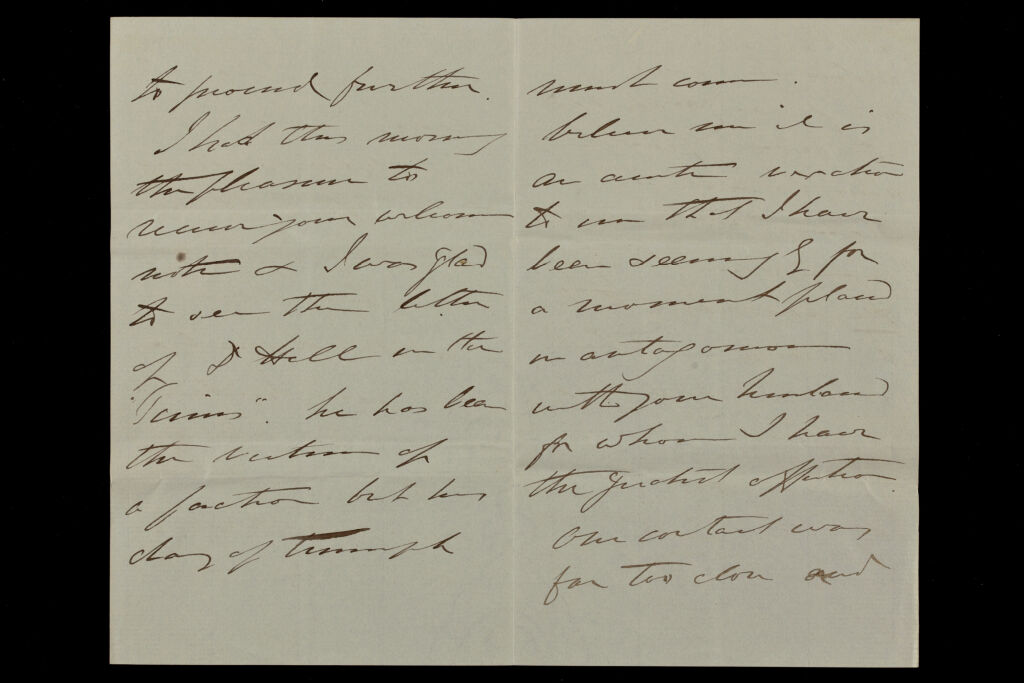 to proceed further.
I had this morning
the pleasure to
receive your welcome
note & I was glad
to see the letter
of D Hall in the
"Times". he has been
the victim of
a faction but his
day of triumph
must come.
believe me it is
an acute vexation
to me that I have
been seemingly for
a moment placed
in antagonism
with your husband
for whom I have
the greatest affection.
Our contact was
far too close and